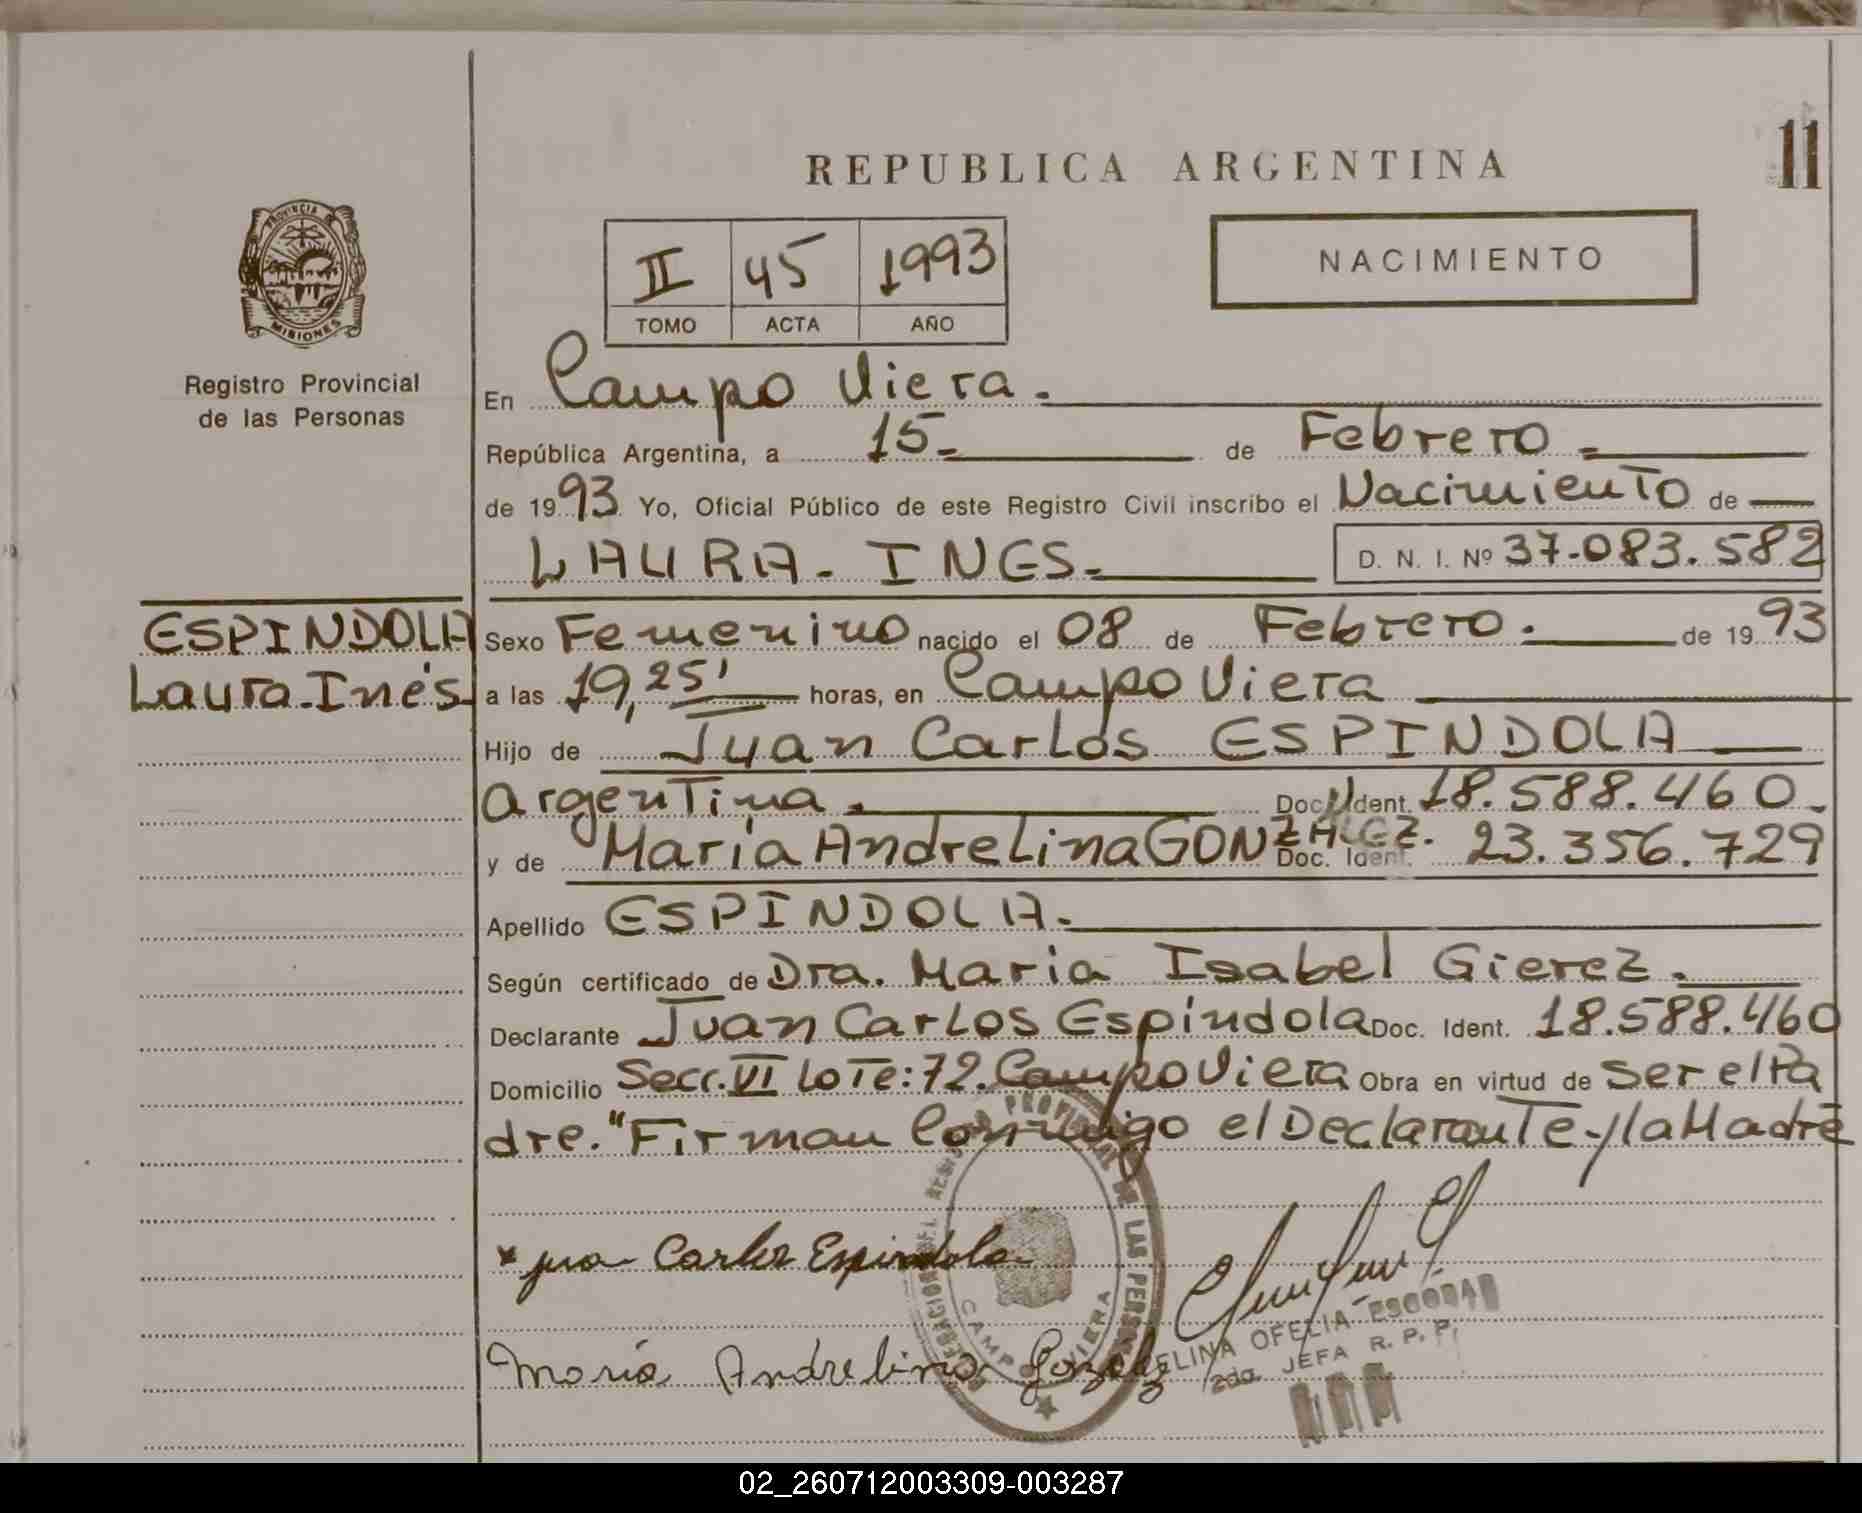 11
REPUBLICA ARGENTINA
PROVINCIA DE
MISIONES
II 45 1993
TOMO ACTA AÑO
NACIMIENTO
Registro Provincial
de las Personas
En Campo Viera.
República Argentina, a 15 de Febrero
de 1993 Yo, Oficial Público de este Registro Civil inscribo el Nacimiento de
LAURA. INES. D. N. I. Nº 37.083.582
ESPINDOLA
Laura Inés
Sexo Femenino nacido el 08 de Febrero. de 1993
a las 19,25' horas, en Campo Viera
Hijo de Juan Carlos ESPINDOLA
Argentina. Doc. Ident. 18.588.460.
y de María Andrelina GONZALEZ. Doc. Ident. 23.356.729
Apellido ESPINDOLA.
Según certificado de Dra. Maria Isabel Gierez.
Declarante Juan Carlos Espíndola Doc. Ident. 18.588.460
Domicilio Secc. VI Lote: 72. Campo Viera Obra en virtud de ser el Pa
dre. "Firman Conmigo el Declarante y la Madre
Carlos Espindola
María Andrelina Gonzalez
PROVINCIAL DE LAS PERSONAS
CAMPO VIERA
OFELIA ESCOBAR
2da. JEFA R. P. P.
02_260712003309-003287